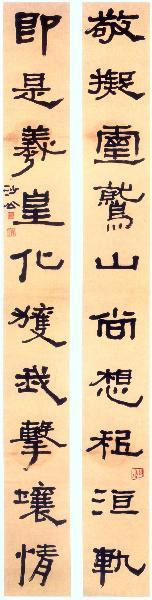 敬擬靈鷲山尚想祇洹軌
即是羲皇化獲我擊壤情